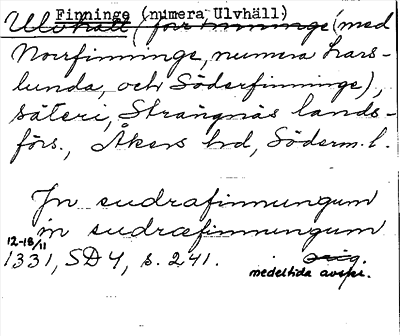 Finninge (numera Ulvhäll)
Ulvhäll (förr Finninge (med
Norrfinninge, numera Lars-
lunda, och Söderfinninge),
säteri, Strängnäs lands-
förs., Åkers hd, Söderm. l.
In sudrafinnungum
in sudræfinnungum
12-18/11
1331, SD 4, s. 241. orig.
medeltida avskr.